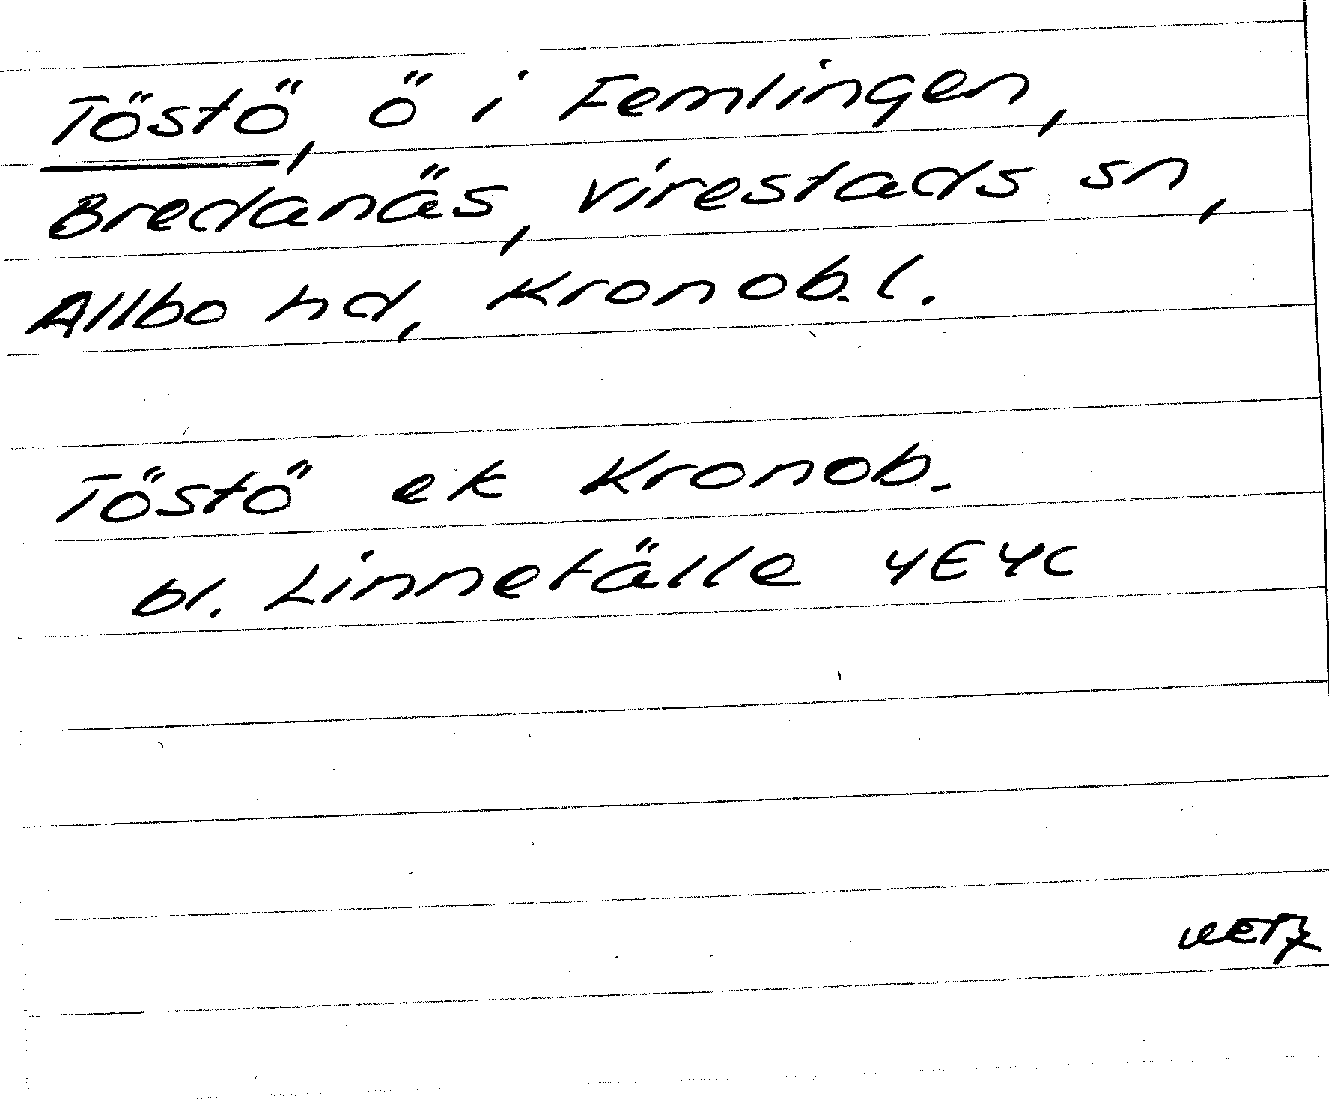 Töstö, ö i Femlingen,
Bredanäs, Virestads sn,
Allbo hd, Kronob. l.
Töstö ek Kronob.
bl. Linnefälle 4E4c